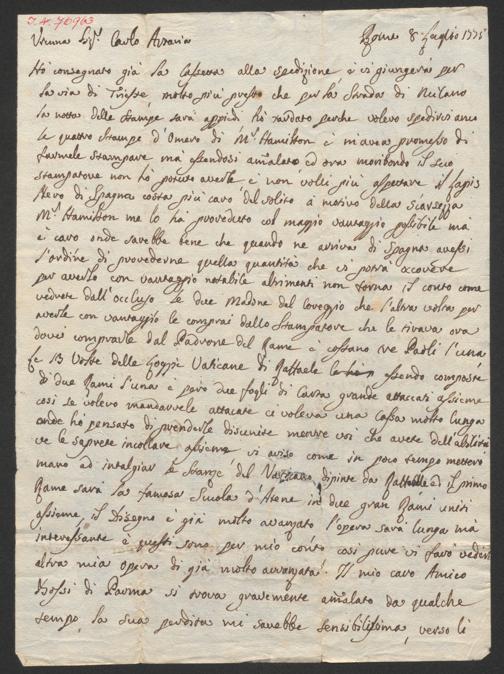 I.N. 76963
Roma 8 Luglio 1775
Sigr Carlo
Ho consegnato già la Cassetta alla spedizione e vi giungerà per
la via di Trieste molto più presto che per la Strada di Milano
la nota delle Stampe sarà appiedi ho tardato perche volevo spedirvi anco
le quattro Stampe d'Omero di Mr Hamilton e m'avea promesso di
farmele stampare ma essendosi amalato ed ora moribondo il suo
stampatore non ho potuto averle e non volli più aspettare il lapis
Nero di Spagna costa più caro del solito a motivo della scarsezza
Mr Hamilton me lo ha proveduto col maggio vantaggio possibile ma
è caro onde sarebbe bene che quando ne arriva di Spagna avessi
l'ordine di provederne quella quantità che vi potrà accorrere
per averlo con vantaggio notabile altrimenti non torna il conto come
vedrete dall'occluso le due Madone del Coreggio che l'altra volta per
averle con vantaggio le comprai dallo Stampatore che le tirava ora
dovei comprarle dal Padrone del Rame e costano tre Paoli l'una
13 Volte delle Loggie Vaticane di Raffaele essendo composte
di due Rami l'una e però due fogli di Carta grande attaccati assieme
così se volevo mandarvele attacate ci voleva una cassa molto lunga
onde ho pensato di prenderle disunite mentre voi che avete dell'abilità
ve le saprete incollare assieme vi aviso come in poco tempo metterò
mano ad intagliar le Stanze del Vaticano dipinte da Raffaele ed il primo
Rame sarà la famosa Scuola d'Atene in due gran Rami uniti
assieme il Disegno è già molto avanzato l'opera sarà lunga ma
interessante e questi sono per mio conto così pure vi farò vedere
altra mia opera di già molto avvanzata Il mio caro Amico
Rossi di Parma si trova gravemente amalato da qualche
tempo, la sua perdita mi sarebbe sensibilissima, verso li